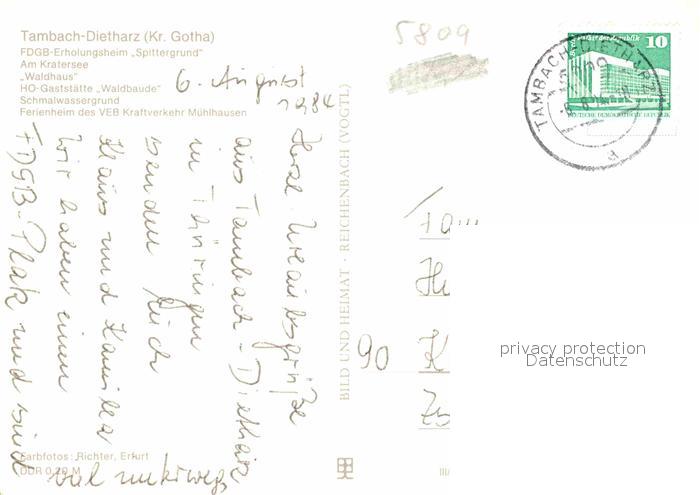 Tambach-Dietharz (Kr. Gotha)
FDGB-Erholungsheim „Spittergrund"
Am Kratersee
„Waldhaus"
HO-Gaststätte „Waldbaude"
Schmalwassergrund
Ferienheim des VEB Kraftverkehr Mühlhausen
5809
6. August
1984
Herzl. Urlaubsgrüße
aus Tambach-Dietharz
in Thüringen
senden Euch
Klaus und
Wir haben einen
FDGB-Platz und sind
viel unterwegs
Farbfotos: Richter, Erfurt
DDR 0,20 M
BILD UND HEIMAT · REICHENBACH (VOGTL)
III/
TAMBACH-DIETHARZ
10
DEUTSCHE DEMOKRATISCHE REPUBLIK
Fa...
90
privacy protection
Datenschutz